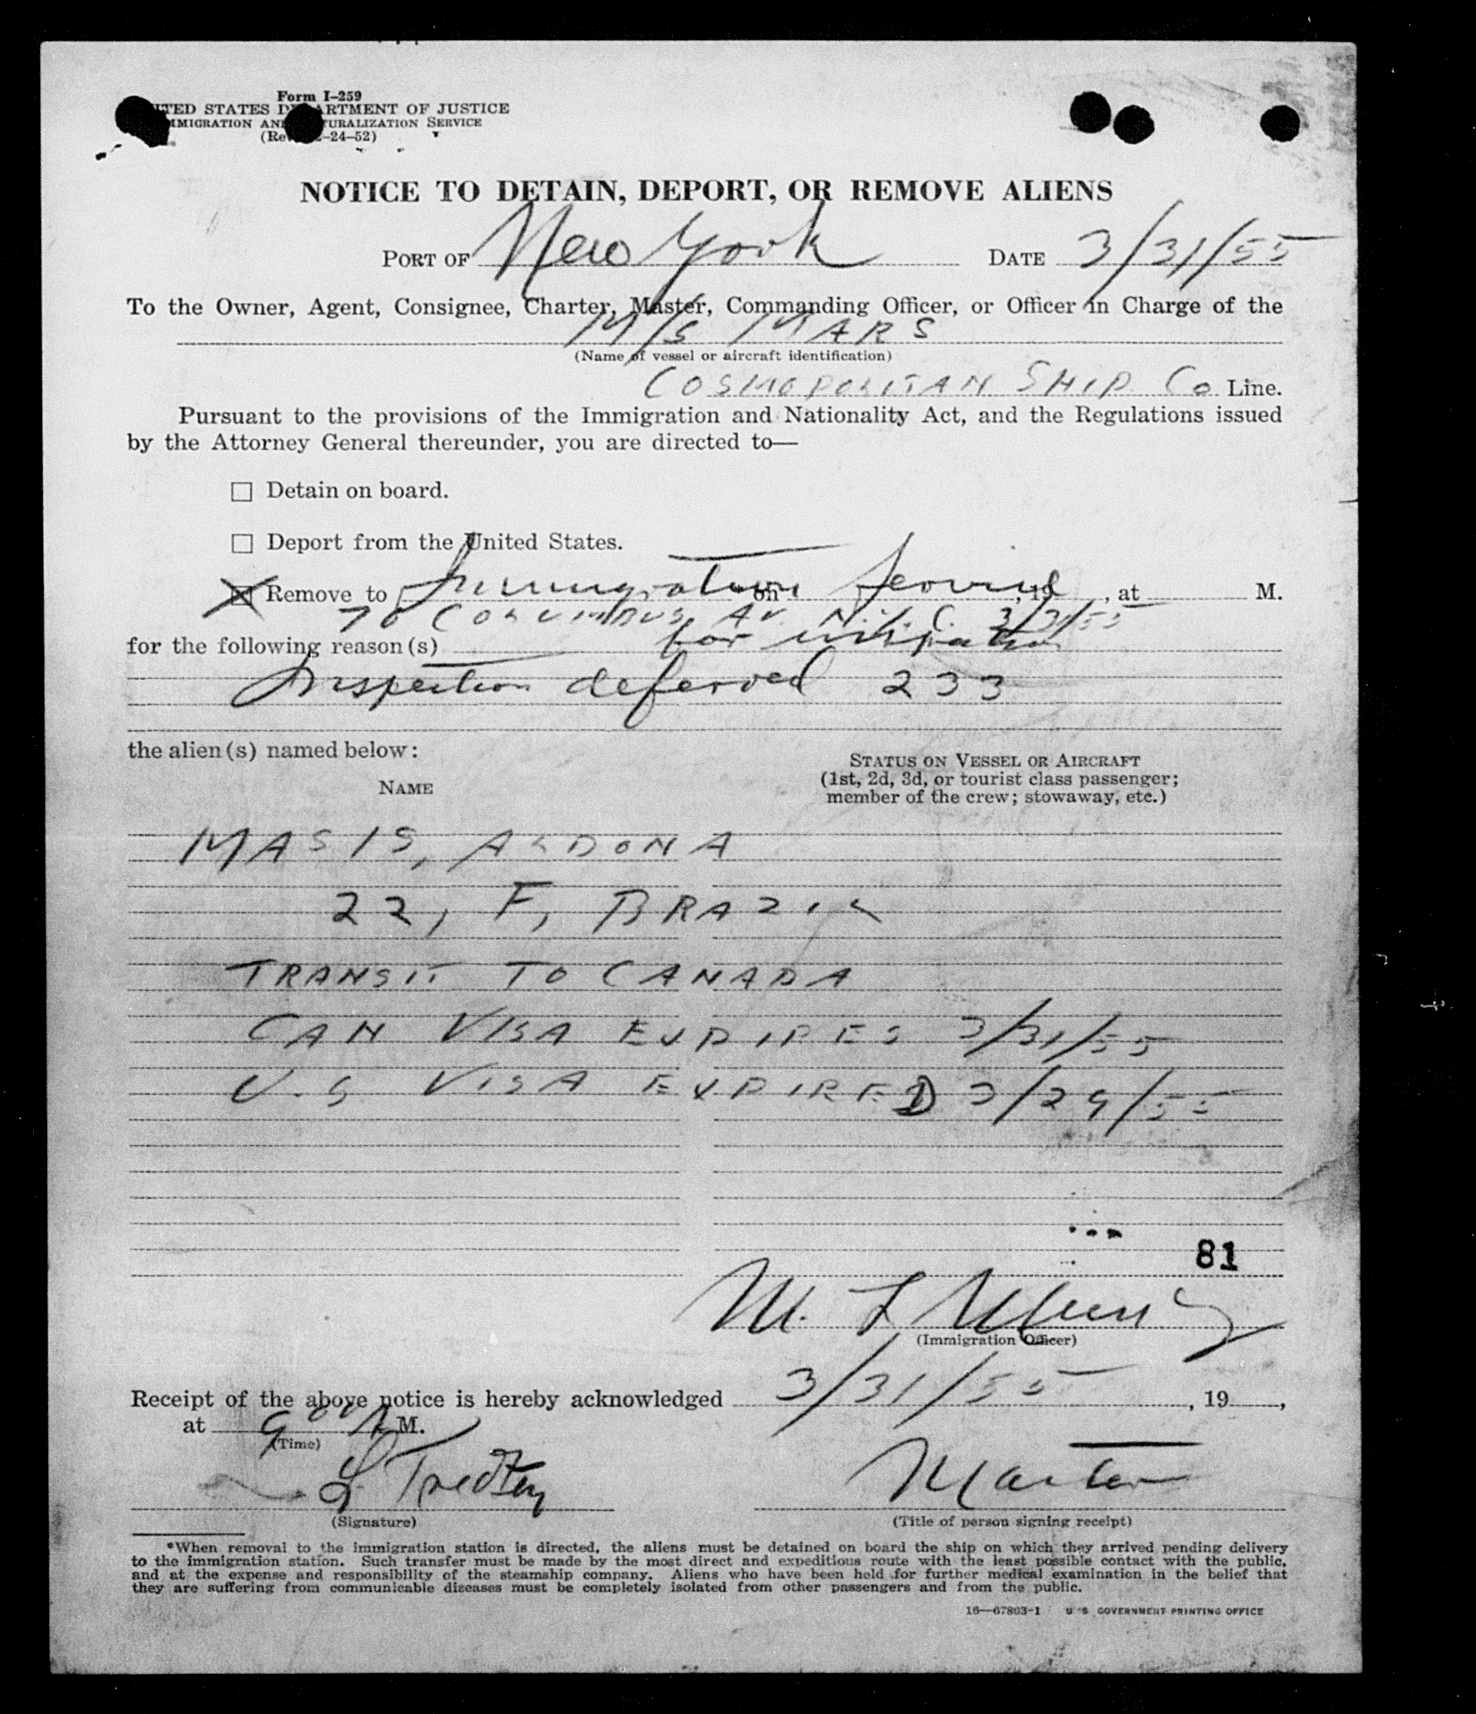 Form I-259
UNITED STATES DEPARTMENT OF JUSTICE
IMMIGRATION AND NATURALIZATION SERVICE
(Rev. -24-52)
NOTICE TO DETAIN, DEPORT, OR REMOVE ALIENS
PORT OF New York DATE 3/31/55
To the Owner, Agent, Consignee, Charter, Master, Commanding Officer, or Officer in Charge of the
M/S MARS
(Name of vessel or aircraft identification)
COSMOPOLITAN SHIP Co Line.
Pursuant to the provisions of the Immigration and Nationality Act, and the Regulations issued
by the Attorney General thereunder, you are directed to—
☐ Detain on board.
☐ Deport from the United States.
☒ Remove to Immigration Service on , 19 , at M.
70 COLUMBUS AV. N.Y.C. 3/31/55
for the following reason(s) for
Inspection deferred 233
the alien(s) named below:
NAME
STATUS ON VESSEL OR AIRCRAFT
(1st, 2d, 3d, or tourist class passenger;
member of the crew; stowaway, etc.)
MASIS, ALDONA
22, F, BRAZIL
TRANSIT TO CANADA
CAN VISA EXPIRES 3/31/55
U.S VISA EXPIRED 3/29/55
81
M. L.
(Immigration Officer)
Receipt of the above notice is hereby acknowledged 3/31/55, 19 ,
at 9 00 A M.
(Time)
Master
(Signature)
(Title of person signing receipt)
*When removal to the immigration station is directed, the aliens must be detained on board the ship on which they arrived pending delivery
to the immigration station. Such transfer must be made by the most direct and expeditious route with the least possible contact with the public,
and at the expense and responsibility of the steamship company. Aliens who have been held for further medical examination in the belief that
they are suffering from communicable diseases must be completely isolated from other passengers and from the public.
16—67803-1 U S GOVERNMENT PRINTING OFFICE